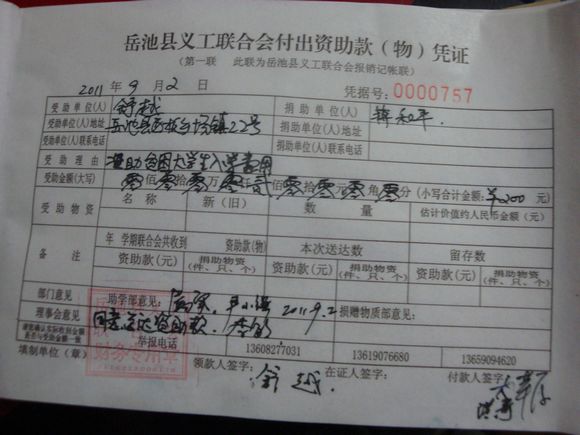 岳池县义工联合会付出资助款（物）凭证
（第一联 此联为岳池县义工联合会报销记帐联）
2011年9月2日 凭据号：0000757
受助单位(人) 舒越 捐助单位(人) 韩和平
受助单位(人)地址 岳池县 场镇22号 捐助单位(人)地址
受助单位(人)联系电话 捐助单位(人)联系电话
受助理由 资助贫困大学生入学费用
受助金额(大写) 零佰零拾零万零仟贰佰零拾零元零角零分 (小写合计金额:¥200元)
受助物资 名称 新（旧） 数量 估计价值约人民币金额(元)
备注 年 学期联合会共收到 资助款(物) 本次送达数 留存数
资助款(元) 捐助物资(件、只、个) 资助款(元) 捐助物资(件、只、个) 资助款(元) 捐助物资(件、只、个)
部门意见 助学部意见： 2011.9.2 捐赠物质部意见：
理事会意见 同意送达资助款.
请您确认实际收到金额是否与受助金额一致 举报电话 13608277031 13619076680 13659094620
财务专用章
填制单位（章） 领款人签字： 舒越 在证人签字： 付款人签字：